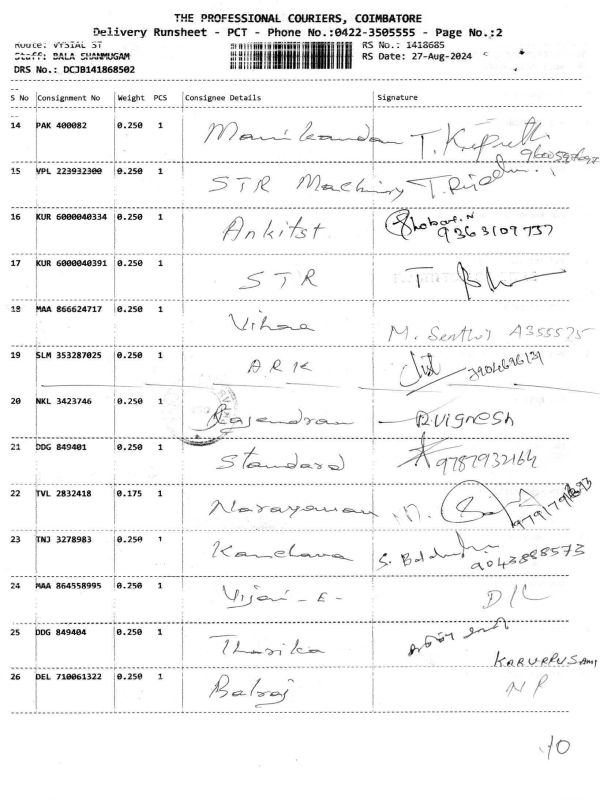 THE PROFESSIONAL COURIERS, COIMBATORE
Delivery Runsheet - PCT - Phone No.:0422-3505555 - Page No.:2
Route: VYSIAL ST RS No.: 1418685
Staff: BALA SHANMUGAM RS Date: 27-Aug-2024
DRS No.: DCJB141868502
S No Consignment No Weight PCS Consignee Details Signature
14 PAK 400082 0.250 1 Manikandan T.
15 VPL 223932300 0.250 1 STR Machinry
16 KUR 6000040334 0.250 1 Ankitst
9363109737
17 KUR 6000040391 0.250 1 STR T
18 MAA 866624717 0.250 1 M. A355575
19 SLM 353287025 0.250 1 ARK
20 NKL 3423746 0.250 1 Rajendran R.Vignesh
21 DDG 849401 0.250 1 Standard 9787932164
22 TVL 2832418 0.175 1 Narayanan
23 TNJ 3278983 0.250 1 S.
9043888573
24 MAA 864558995 0.250 1 D/L
25 DDG 849404 0.250 1 Tharika
KARUPPUSAMI
26 DEL 710061322 0.250 1 Balraj NP